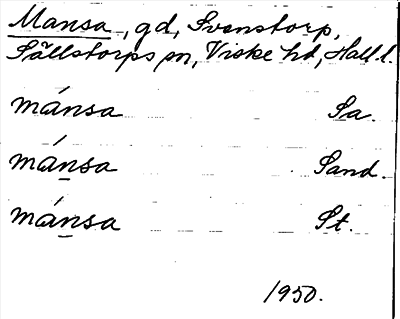 Mansa, gd, Svenstorp,
Sällstorps sn, Viske hd, Hall. l.
mánsa Sa.
mánsa Sand.
mánsa St.
1950.